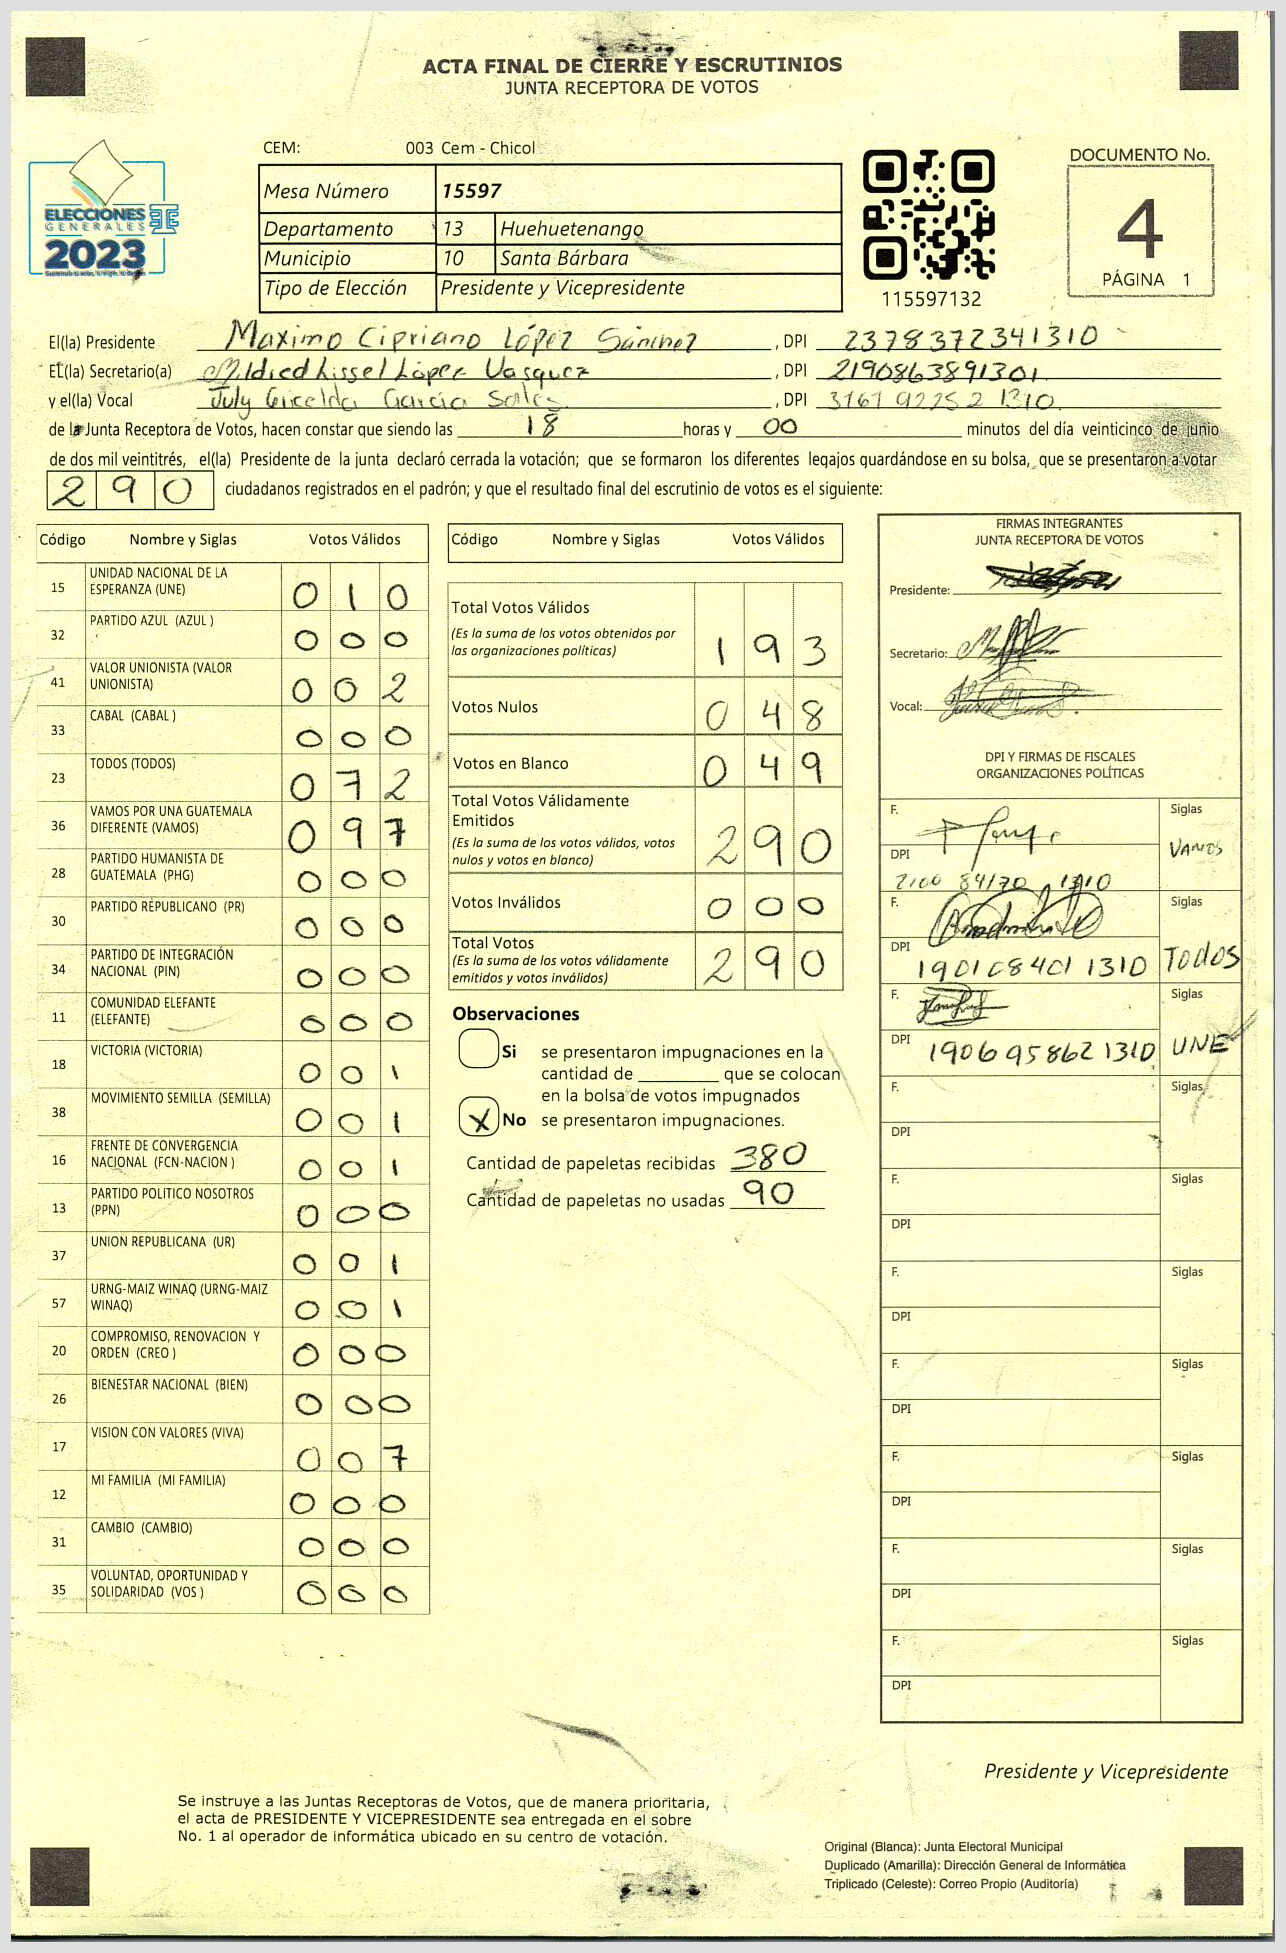 ACTA FINAL DE CIERRE Y ESCRUTINIOS
JUNTA RECEPTORA DE VOTOS
CEM: 003 Cem - Chicol
ELECCIONES
GENERALES
2023
Mesa Número 15597
Departamento 13 Huehuetenango
Municipio 10 Santa Bárbara
Tipo de Elección Presidente y Vicepresidente
115597132
DOCUMENTO No.
4
PÁGINA 1
El(la) Presidente Maximo Cipriano López Sánchez , DPI 2378372341310
El(la) Secretario(a) Mildred Lissel López Vasquez , DPI 2190863891301
y el(la) Vocal July Griselda García Sales , DPI 3161 92252 1310
de la Junta Receptora de Votos, hacen constar que siendo las 18 horas y 00 minutos del día veinticinco de junio
de dos mil veintitrés, el(la) Presidente de la junta declaró cerrada la votación; que se formaron los diferentes legajos guardándose en su bolsa, que se presentaron a votar
290 ciudadanos registrados en el padrón; y que el resultado final del escrutinio de votos es el siguiente:
Código Nombre y Siglas Votos Válidos
15 UNIDAD NACIONAL DE LA
ESPERANZA (UNE) 0 1 0
32 PARTIDO AZUL (AZUL ) 0 0 0
41 VALOR UNIONISTA (VALOR
UNIONISTA) 0 0 2
33 CABAL (CABAL ) 0 0 0
23 TODOS (TODOS) 0 7 2
36 VAMOS POR UNA GUATEMALA
DIFERENTE (VAMOS) 0 9 7
28 PARTIDO HUMANISTA DE
GUATEMALA (PHG) 0 0 0
30 PARTIDO REPUBLICANO (PR) 0 0 0
34 PARTIDO DE INTEGRACIÓN
NACIONAL (PIN) 0 0 0
11 COMUNIDAD ELEFANTE
(ELEFANTE) 0 0 0
18 VICTORIA (VICTORIA) 0 0 1
38 MOVIMIENTO SEMILLA (SEMILLA) 0 0 1
16 FRENTE DE CONVERGENCIA
NACIONAL (FCN-NACION ) 0 0 1
13 PARTIDO POLITICO NOSOTROS
(PPN) 0 0 0
37 UNION REPUBLICANA (UR) 0 0 1
57 URNG-MAIZ WINAQ (URNG-MAIZ
WINAQ) 0 0 1
20 COMPROMISO, RENOVACION Y
ORDEN (CREO ) 0 0 0
26 BIENESTAR NACIONAL (BIEN) 0 0 0
17 VISION CON VALORES (VIVA) 0 0 7
12 MI FAMILIA (MI FAMILIA) 0 0 0
31 CAMBIO (CAMBIO) 0 0 0
35 VOLUNTAD, OPORTUNIDAD Y
SOLIDARIDAD (VOS ) 0 0 0
Código Nombre y Siglas Votos Válidos
Total Votos Válidos
(Es la suma de los votos obtenidos por
las organizaciones políticas) 1 9 3
Votos Nulos 0 4 8
Votos en Blanco 0 4 9
Total Votos Válidamente
Emitidos
(Es la suma de los votos válidos, votos
nulos y votos en blanco) 2 9 0
Votos Inválidos 0 0 0
Total Votos
(Es la suma de los votos válidamente
emitidos y votos inválidos) 2 9 0
Observaciones
Si se presentaron impugnaciones en la
cantidad de ________ que se colocan
en la bolsa de votos impugnados
X No se presentaron impugnaciones.
Cantidad de papeletas recibidas 380
Cantidad de papeletas no usadas 90
FIRMAS INTEGRANTES
JUNTA RECEPTORA DE VOTOS
Presidente:
Secretario:
Vocal:
DPI Y FIRMAS DE FISCALES
ORGANIZACIONES POLÍTICAS
F. Siglas
VAMOS
DPI
2100 84170 1310
F. Siglas
DPI TODOS
190108401 1310
F. Siglas
DPI 190695862 1310 UNE
F. Siglas
DPI
F. Siglas
DPI
F. Siglas
DPI
F. Siglas
DPI
F. Siglas
DPI
F. Siglas
DPI
F. Siglas
DPI
Presidente y Vicepresidente
Se instruye a las Juntas Receptoras de Votos, que de manera prioritaria,
el acta de PRESIDENTE Y VICEPRESIDENTE sea entregada en el sobre
No. 1 al operador de informática ubicado en su centro de votación.
Original (Blanca): Junta Electoral Municipal
Duplicado (Amarilla): Dirección General de Informática
Triplicado (Celeste): Correo Propio (Auditoría)